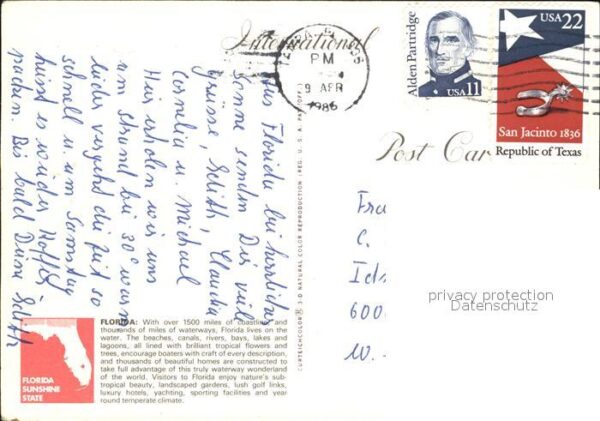 International
PM
9 APR
1986
Alden Partridge
USA 11
USA 22
San Jacinto 1836
Republic of Texas
Post Car
Aus Florida bei herrlicher
Sonne senden Dir viele
Grüsse, Edith, Claudia
Cornelia u. Michael
Hier erholen wir uns
am Strand bei 30° warm
leider vergeht die Zeit so
schnell u. am Samstag
heisst es wieder Koffer
packen. Bis bald Deine Edith
CURTEICHCOLOR® 3-D NATURAL COLOR REPRODUCTION (REG. U. S. A. PAT. OFF.)
Fra
C.
Ids
600
W.
privacy protection
Datenschutz
FLORIDA: With over 1500 miles of coastline and
thousands of miles of waterways, Florida lives on the
water. The beaches, canals, rivers, bays, lakes and
lagoons, all lined with brilliant tropical flowers and
trees, encourage boaters with craft of every description,
and thousands of beautiful homes are constructed to
take full advantage of this truly waterway wonderland
of the world. Visitors to Florida enjoy nature's sub-
tropical beauty, landscaped gardens, lush golf links,
luxury hotels, yachting, sporting facilities and year
round temperate climate.
FLORIDA
SUNSHINE
STATE